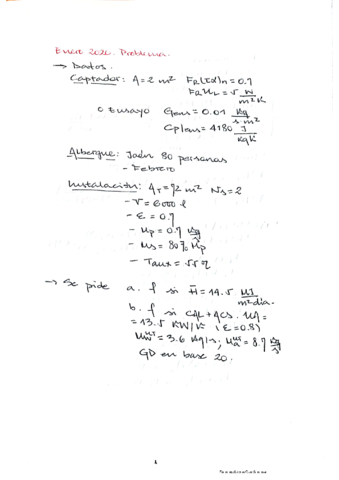 Enero 2020. Problema.
→ Datos.
Captador: A = 2 m² FR(τα)n = 0.7
FRUL = 5 W/m²K
○ Ensayo Gens = 0.01 kg/s m²
Cpens = 4180 J/kg K
Albergue: Jaén 80 personas
- Febrero
Instalación: AT = 92 m² Ns = 2
- V = 6000 l
- ε = 0.7
- Mp = 0.7 kg/s
- Ms = 80% Mp
- Taux = 55
→ Se pide a. f si H = 14.5 MJ/m² dia.
b. f si CAL + ACS. UA =
= 13.5 kW/K (ε = 0.8)
= 3.6 kg/s; = 8.7 kg/s
GD en base 20.